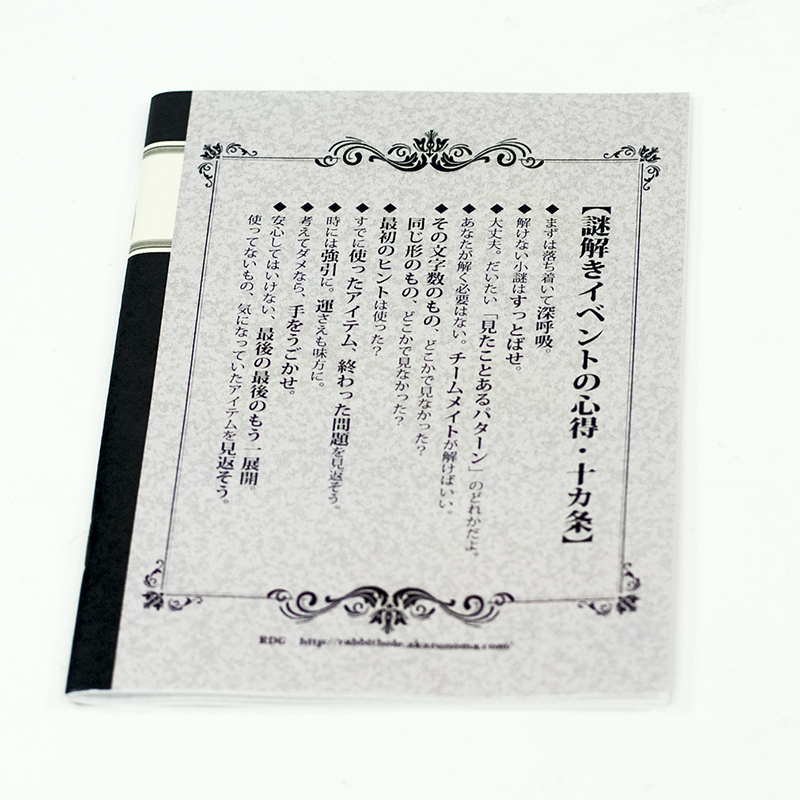 【謎解きイベントの心得・十カ条】
◆まずは落ち着いて深呼吸。
◆解けない小謎はすっとばせ。
◆大丈夫。だいたい「見たことあるパターン」のどれかだよ。
◆あなたが解く必要はない。チームメイトが解けばいい。
◆その文字数のもの、どこかで見なかった？
同じ形のもの、どこかで見なかった？
◆最初のヒントは使った？
◆すでに使ったアイテム、終わった問題を見返そう。
◆時には強引に。運さえも味方に。
◆考えてダメなら、手をうごかせ。
◆安心してはいけない、最後の最後のもう一展開。
使ってないもの、気になっていたアイテムを見返そう。
RDG